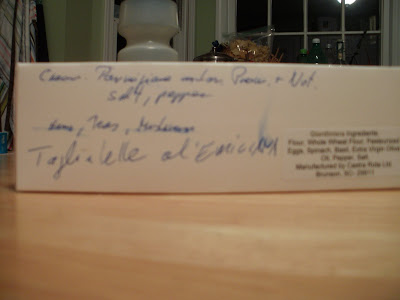 Cream. Parmigiano Prosc. + Nut.
salt, pepper
Peas,
Tagliatelle al'Emiciliya
Giardiniera Ingredients:
Flour, Whole Wheat Flour, Pasteurized
Eggs, Spinach, Basil, Extra Virgin Olive
Oil, Pepper, Salt.
Manufactured by Ltd.
Brunson, SC- 29911